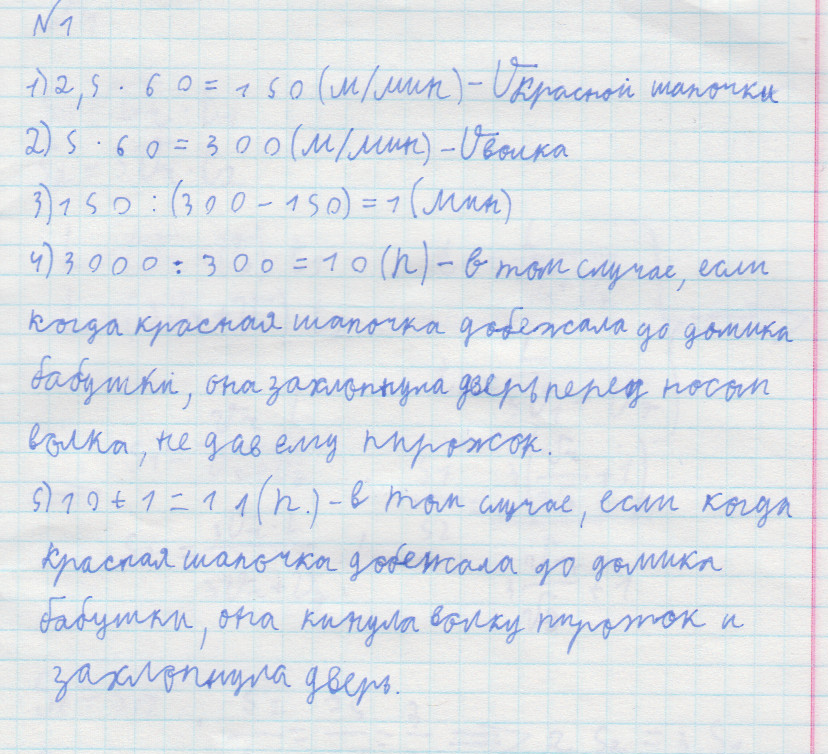 №1
1) 2,5 · 60 = 150 (м/мин) – Vкрасной шапочки
2) 5 · 60 = 300 (м/мин) – Vволка
3) 150 : (300 – 150) = 1 (мин)
4) 3000 : 300 = 10 (п) – в том случае, если
когда красная шапочка добежала до домика
бабушки, она захлопнула дверь перед носом
волка, не дав ему пирожок.
5) 10 + 1 = 11 (п.) – в том случае, если когда
красная шапочка добежала до домика
бабушки, она кинула волку пирожок и
захлопнула дверь.